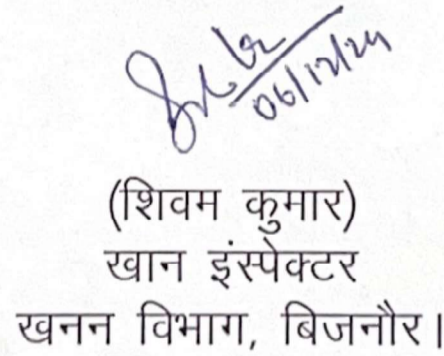 06/12/24
(शिवम कुमार)
खान इंस्पेक्टर
खनन विभाग, बिजनौर।